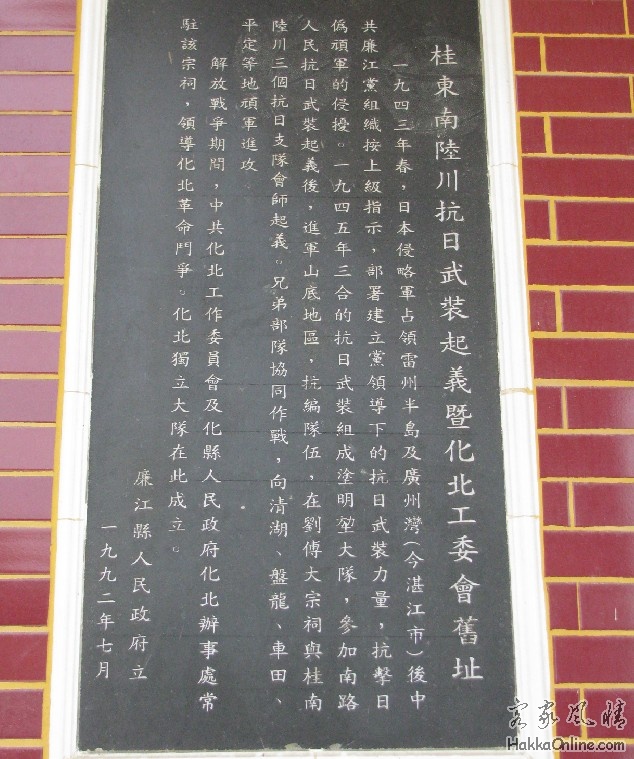 桂東南陸川抗日武裝起義暨化北工委會舊址
一九四三年春，日本侵略軍占領雷州半島及廣州灣（今湛江市）後中
共廉江黨組織按上級指示，部署建立黨領導下的抗日武裝力量，抗擊日
偽頑軍的侵擾。一九四五年三合的抗日武裝組成塗明堃大隊，參加南路
人民抗日武裝起義後，進軍山底地區，抗編隊伍，在劉傅大宗祠與桂南
陸川三個抗日支隊會師起義。兄弟部隊協同作戰，向清湖、盤龍、車田、
平定等地頑軍進攻。
解放戰爭期間，中共化北工作委員會及化縣人民政府化北辦事處常
駐該宗祠，領導化北革命鬥爭。化北獨立大隊在此成立。
廉江縣人民政府立
一九九二年七月
客家風情
HakkaOnline.com